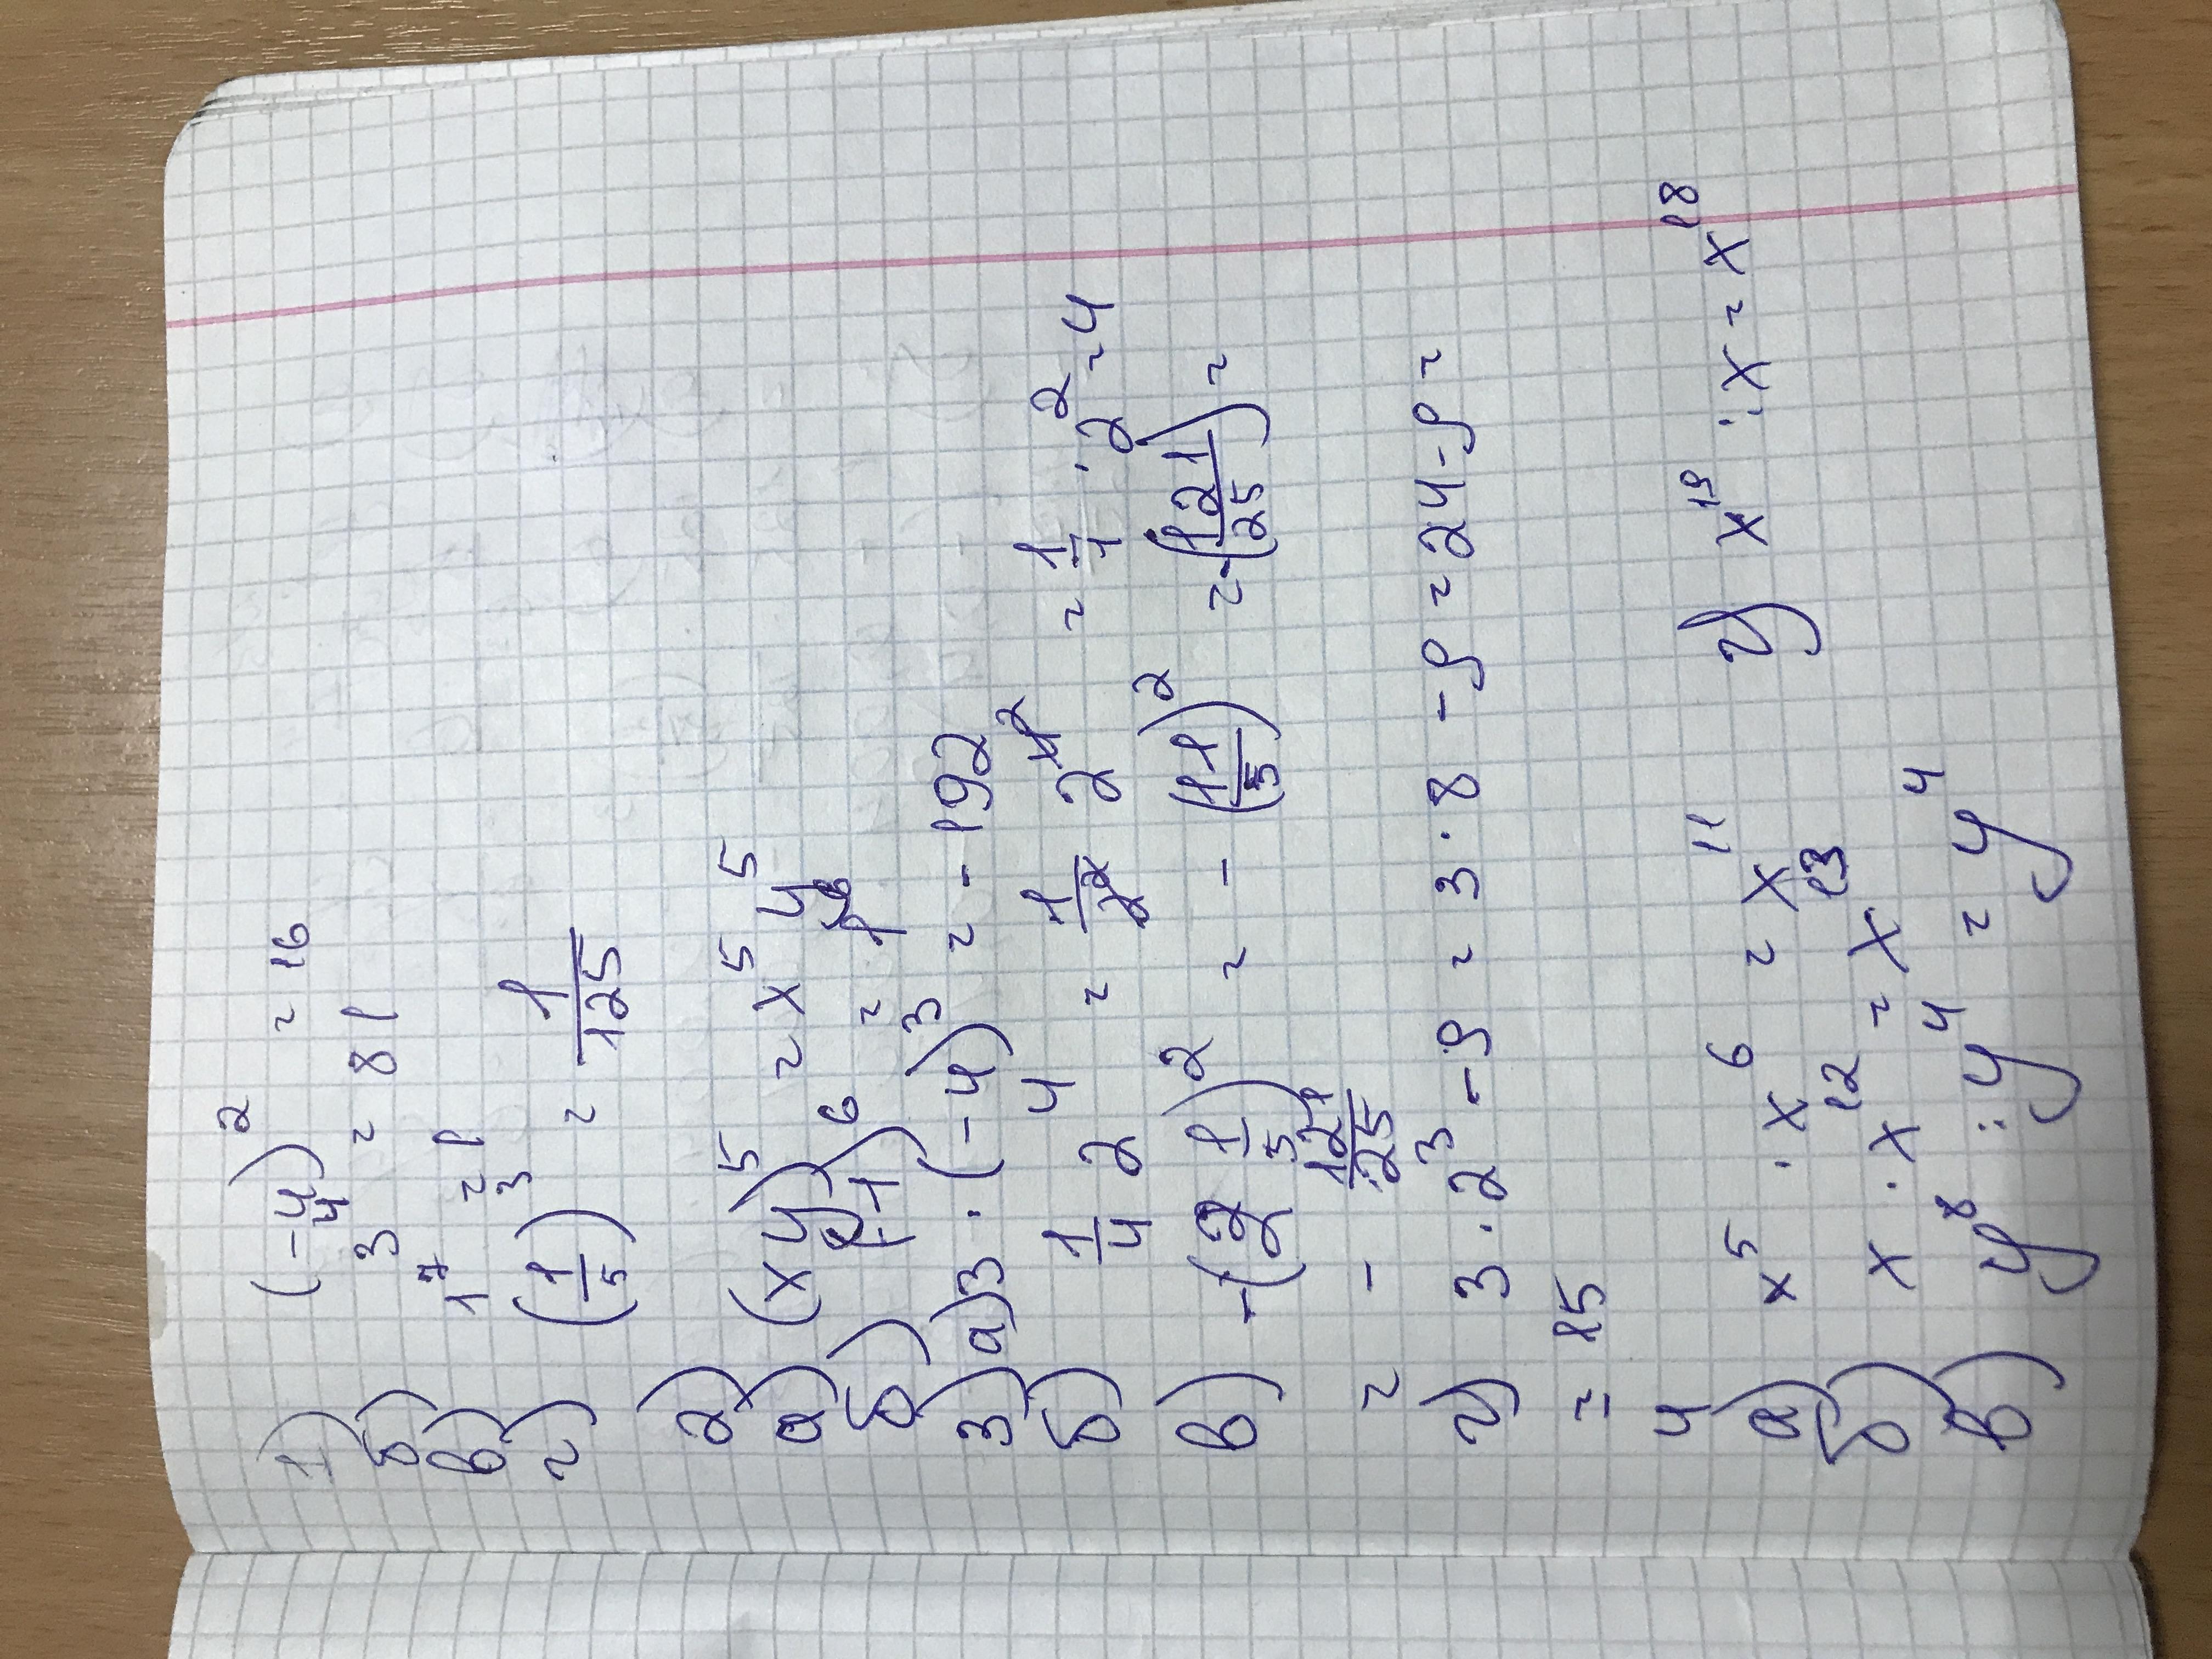 1) (-4)² = 16
б) 3⁴ = 81
в) 1⁷ = 1
г) (1/5)³ = 1/125
2)
а) (xy)⁵ = x⁵y⁵
б) (-1)⁶ = 1
3) а) 3 · (-4)³ = -192
б) 1/4 2⁴ = 1/2² 2⁴ = 1/1 · 2² = 4
в) -(2 1/5)² = -(11/5)² = -(121/25) =
= - 121/25
г) 3 · 2³ - 9 = 3 · 8 - 9 = 24 - 9 =
= 15
4
а) x⁵ · x⁶ = x¹¹ г) x¹⁹ : x = x¹⁸
б) x · x¹² = x¹³
в) y⁸ : y⁴ = y⁴